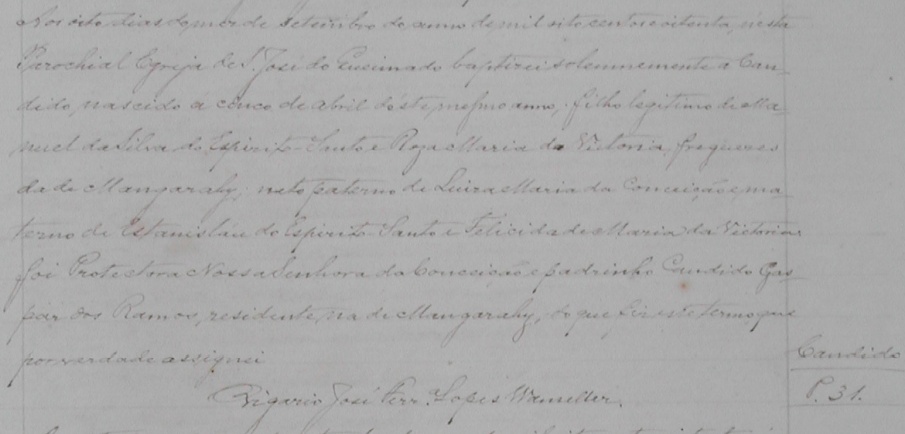 Aos oito dias do mez de Setembro do anno de mil oito centos e oitenta, nesta
Parochial Egreja de S. José do Queimado baptizei solemnemente a Can-
dido nascido a cinco de Abril deste mesmo anno, filho legitimo de Ma-
nuel da Silva do Espirito-Santo e Roza Maria da Victoria, freguezes
da de Mangarahy; neto paterno de Luiza Maria da Conceição e ma-
terno de Estanislau do Espirito-Santo e Felicidade Maria da Victoria
foi Protectora Nossa Senhora da Conceição e padrinho Candido Gas-
par dos Ramos, residente na de Mangarahy, do que fiz este termo que
por verdade assignei
Vigario José Ferr. Lopes
Candido
P. 31.